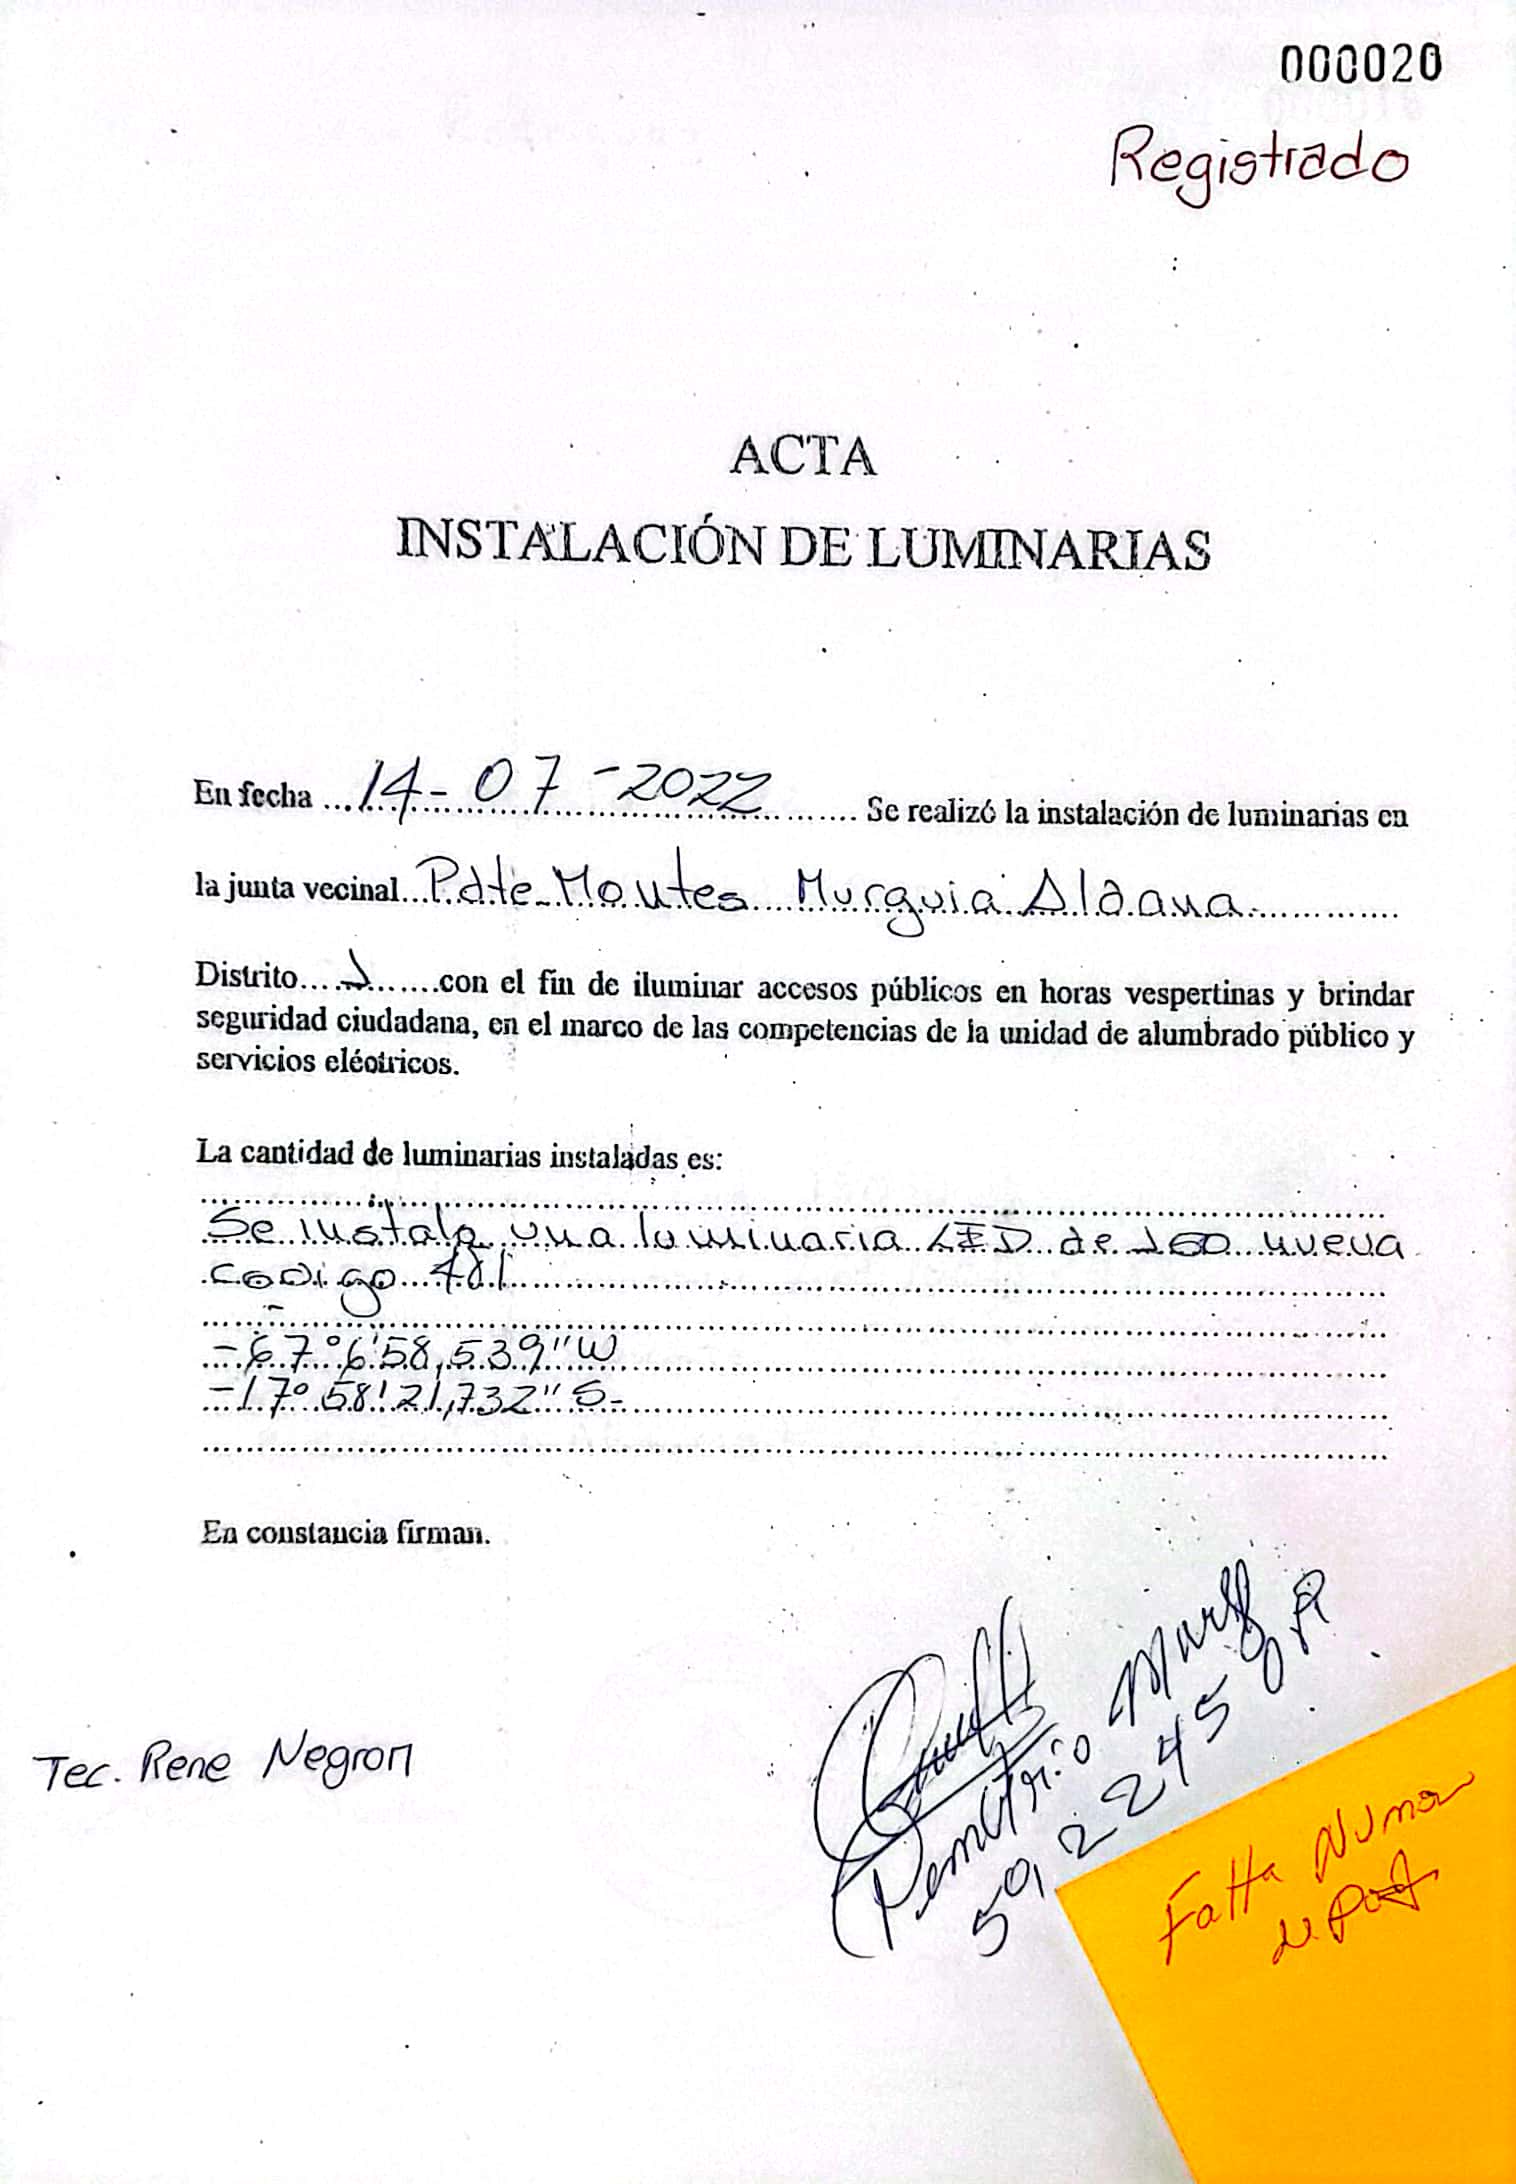 000020
Registrado
ACTA
INSTALACIÓN DE LUMINARIAS
En fecha ... 14-07-2022 ... Se realizó la instalación de luminarias en
la junta vecinal... Pdte Montes Murguia Aldana ...
Distrito... 1 ...con el fin de iluminar accesos públicos en horas vespertinas y brindar
seguridad ciudadana, en el marco de las competencias de la unidad de alumbrado público y
servicios eléctricos.
La cantidad de luminarias instaladas es:
Se instala una luminaria LED de 150 nueva
codigo 481
-67°6'58,539"W
-17°58'21,732"S-
En constancia firman.
Tec. Rene Negron
Demetrio
59 22450
Falta Numero
de Post